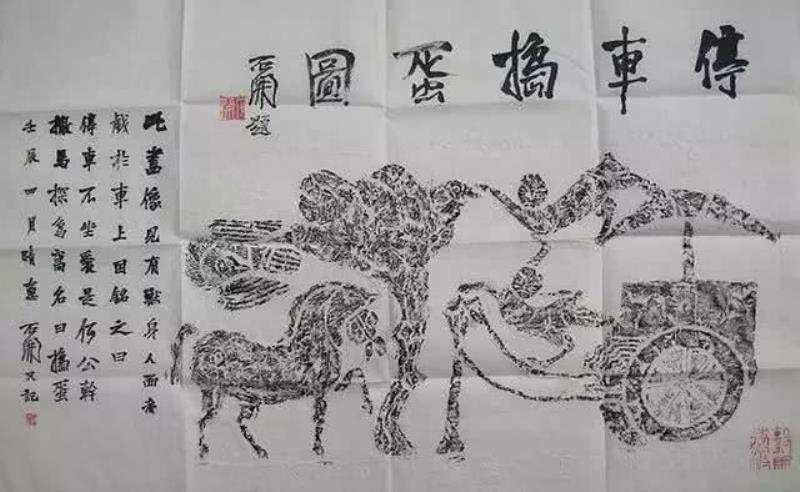 停車搗蛋圖
題
此畫像見有獸身人面者
戲於車上因銘之曰
停車不坐愛是何公幹
馬探鳥窩名曰搗蛋
壬辰四月晴窗 又記